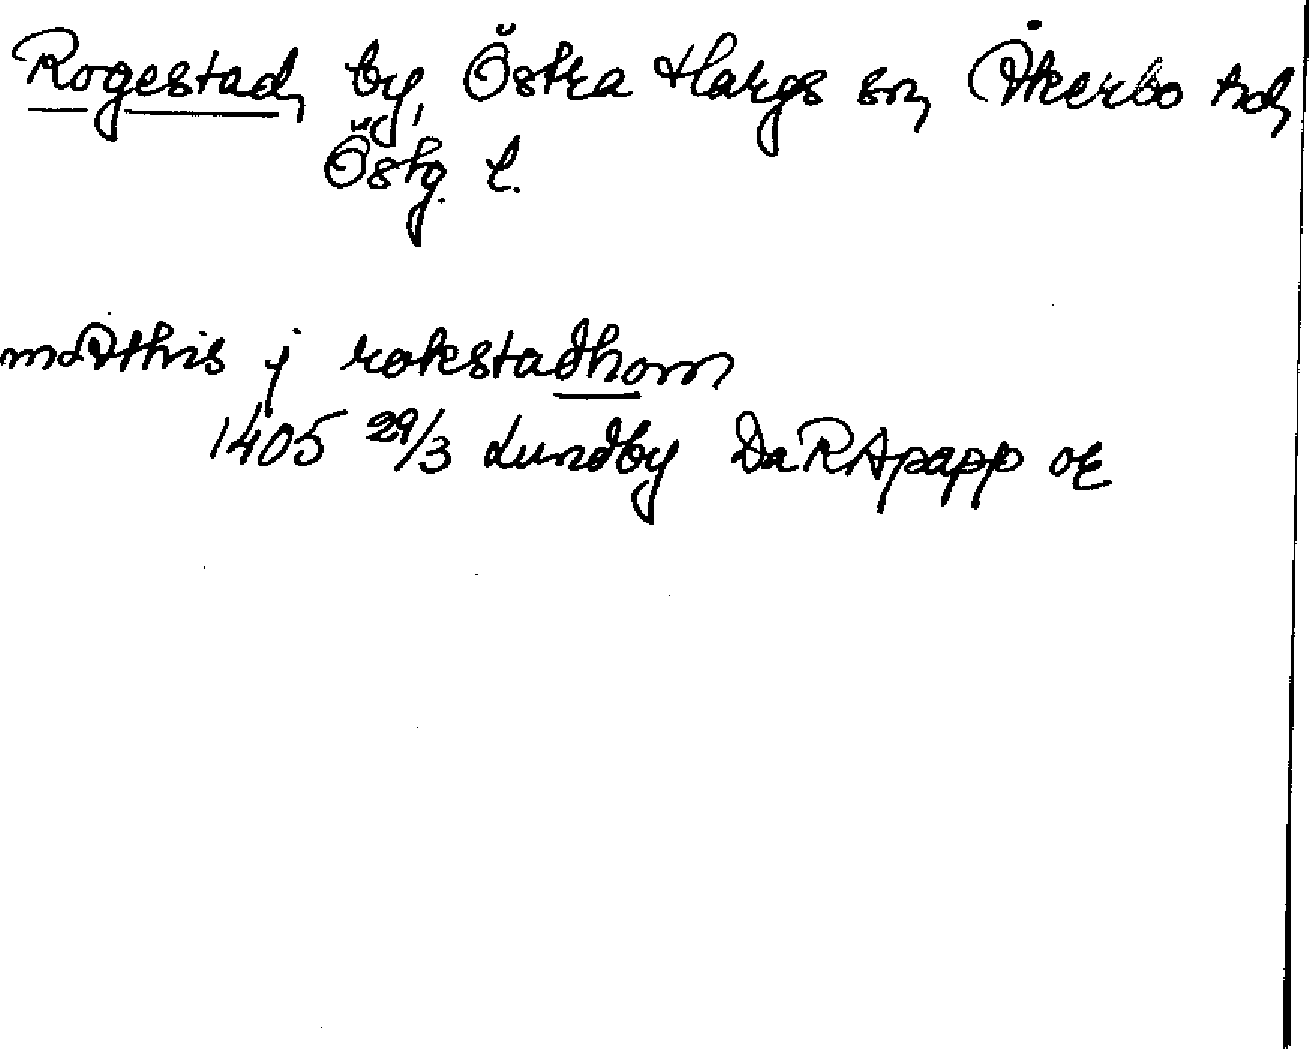 Rogestad, by, Östra Hargs sn, Åkerbo hd,
Östg. l.
mathis j rokstadhom
1405 29/3 Lundby DaRApapp or